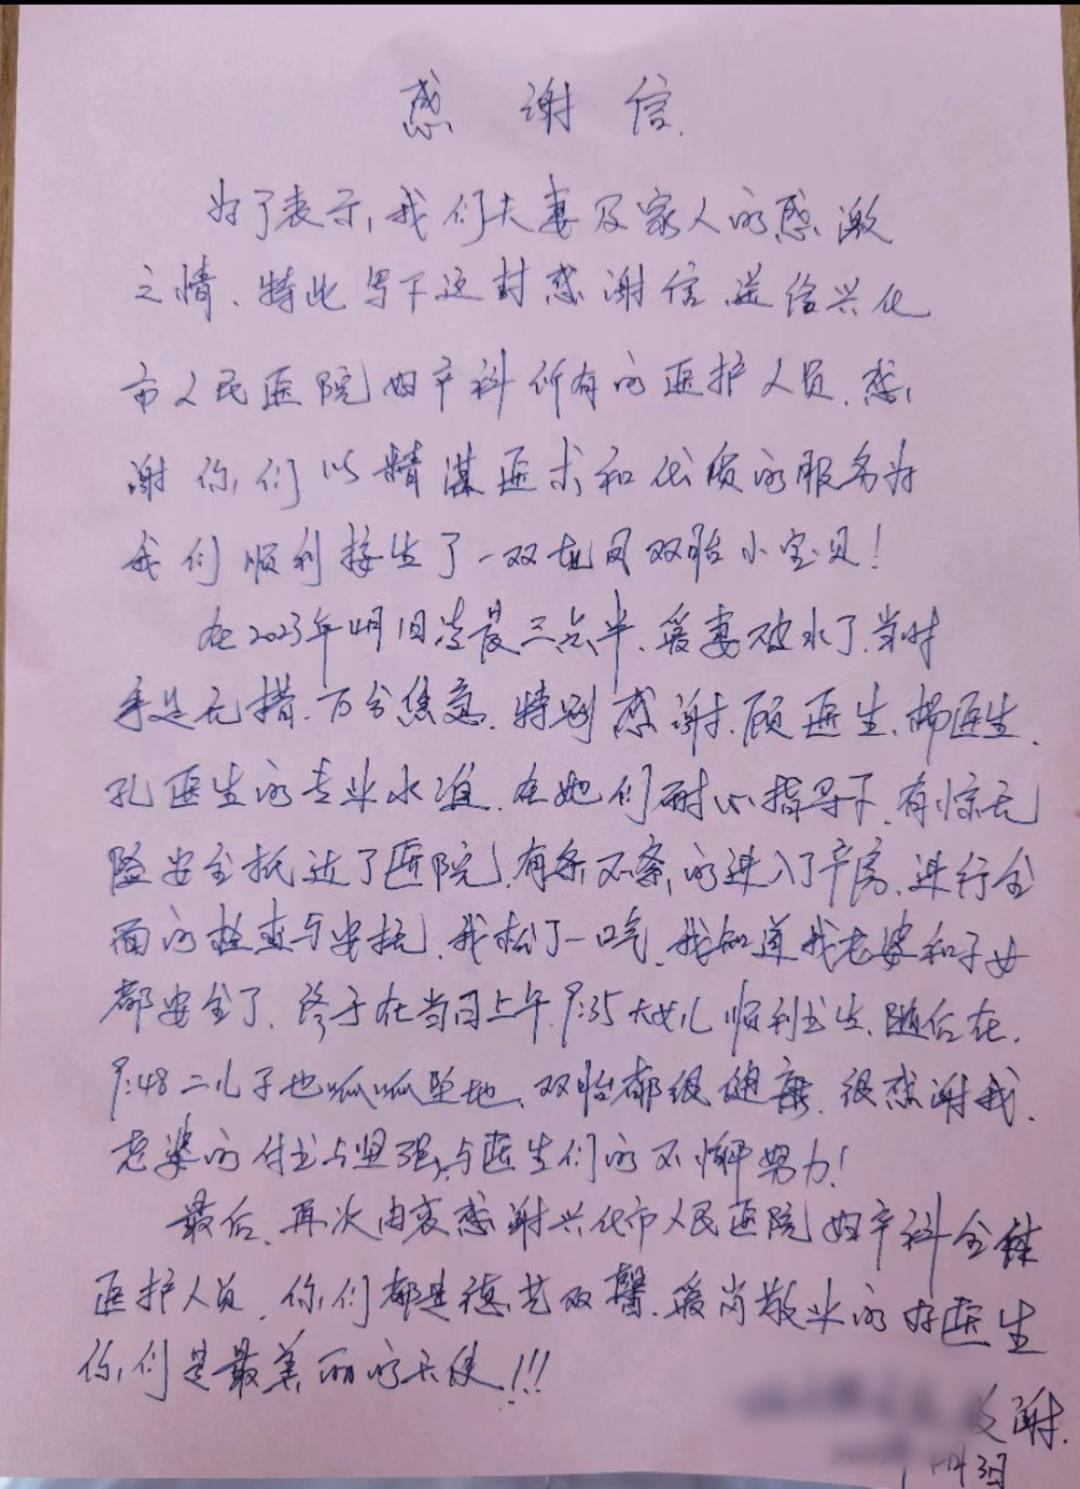 感谢信
为了表示,我们夫妻及家人的感激
之情、特此写下这封感谢信、送给兴化
市人民医院妇产科所有的医护人员、感
谢你们以精湛医术和优质的服务为
我们顺利接生了一双龙凤双胎小宝贝!
在2023年 凌晨三点半、爱妻破水了、当时
手足无措、万分焦急、特别感谢、顾医生、杨医生、
孔医生的专业水准、在她们耐心指导下、有惊无
险安全抵达了医院、有条不紊的进入了产房、进行全
面的检查与安抚、我松了一口气、我知道我老婆和子女
都安全了、终于在当日上午9:35大女儿顺利出生、随后在、
9:48二儿子也呱呱坠地、双胎都很健康、很感谢我、
老婆的付出与坚强、与医生们的不懈努力!
最后、再次由衷感谢兴化市人民医院妇产科全体
医护人员、你们都是德艺双馨、爱岗敬业的好医生
你们是最美丽的天使!!!
谢.
月3日